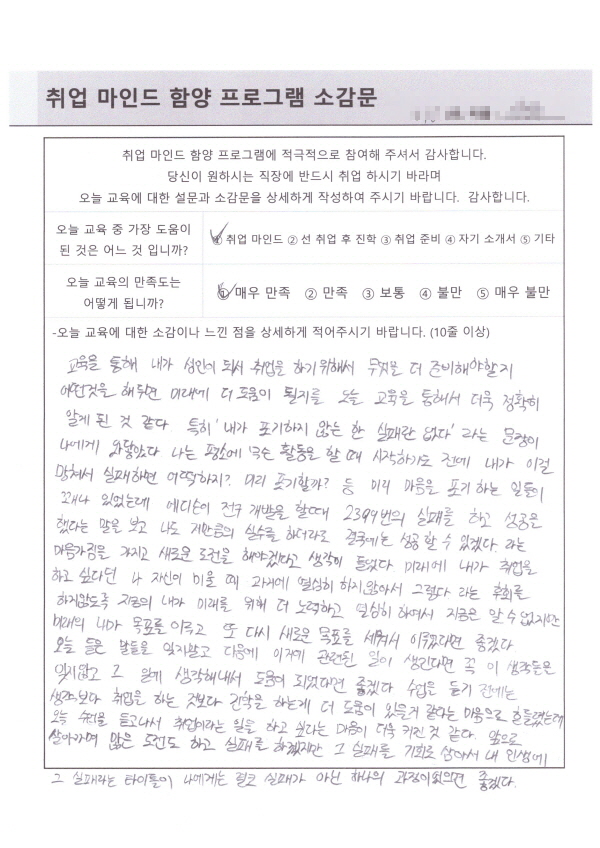 취업 마인드 함양 프로그램 소감문
취업 마인드 함양 프로그램에 적극적으로 참여해 주셔서 감사합니다.
당신이 원하시는 직장에 반드시 취업 하시기 바라며
오늘 교육에 대한 설문과 소감문을 상세하게 작성하여 주시기 바랍니다. 감사합니다.
오늘 교육 중 가장 도움이
된 것은 어느 것 입니까?
① 취업 마인드 ② 선 취업 후 진학 ③ 취업 준비 ④ 자기 소개서 ⑤ 기타
오늘 교육의 만족도는
어떻게 됩니까?
① 매우 만족 ② 만족 ③ 보통 ④ 불만 ⑤ 매우 불만
-오늘 교육에 대한 소감이나 느낀 점을 상세하게 적어주시기 바랍니다. (10줄 이상)
교육을 통해 내가 성인이 되서 취업을 하기 위해서 무엇을 더 준비해야할지
어떤것을 해두면 미래에 더 도움이 될지를 오늘 교육을 통해서 더욱 정확히
알게 된 것 같다. 특히 '내가 포기하지 않는 한 실패란 없다' 라는 문장이
나에게 와닿았다 나는 평소에 무슨 활동을 할 때 시작하기도 전에 내가 이걸
망쳐서 실패하면 어떡하지? 미리 포기할까? 등 미리 마음을 포기 하는 일들이
꽤나 있었는데 에디슨이 전구 개발을 할때 2399번의 실패를 하고 성공을
했다는 말을 보고 나도 저만큼의 실수를 하더라도 결국에는 성공할 수 있겠다. 라는
마음가짐을 가지고 새로운 도전을 해야겠다고 생각이 들었다. 미래에 내가 취업을
하고 싶다던 나 자신이 미울 때 과거에 열심히 하지않아서 그렇다 라는 후회를
하지않도록 지금의 내가 미래를 위해 더 노력하고 열심히 하여서 지금은 알 수 없지만
미래의 나가 목표를 이루고 또 다시 새로운 목표를 세워서 이루었다면 좋겠다
오늘 들은 말들을 잊지않고 다음에 이거에 관련된 일이 생긴다면 꼭 이 생각들은
잊지않고 그 일에 생각해내서 도움이 되었다면 좋겠다 수업을 듣기 전에는
생각보다 취업을 하는 것보다 진학을 하는게 더 도움이 있을거 같다는 마음으로 흔들렸는데
오늘 수업을 듣고나서 취업이라는 일을 하고 싶다는 마음이 더욱 커진 것 같다. 앞으로
살아가며 많은 도전도 하고 실패를 하겠지만 그 실패를 기회로 삼아서 내 인생에
그 실패라는 타이틀이 나에게는 결코 실패가 아닌 하나의 과정이었으면 좋겠다.